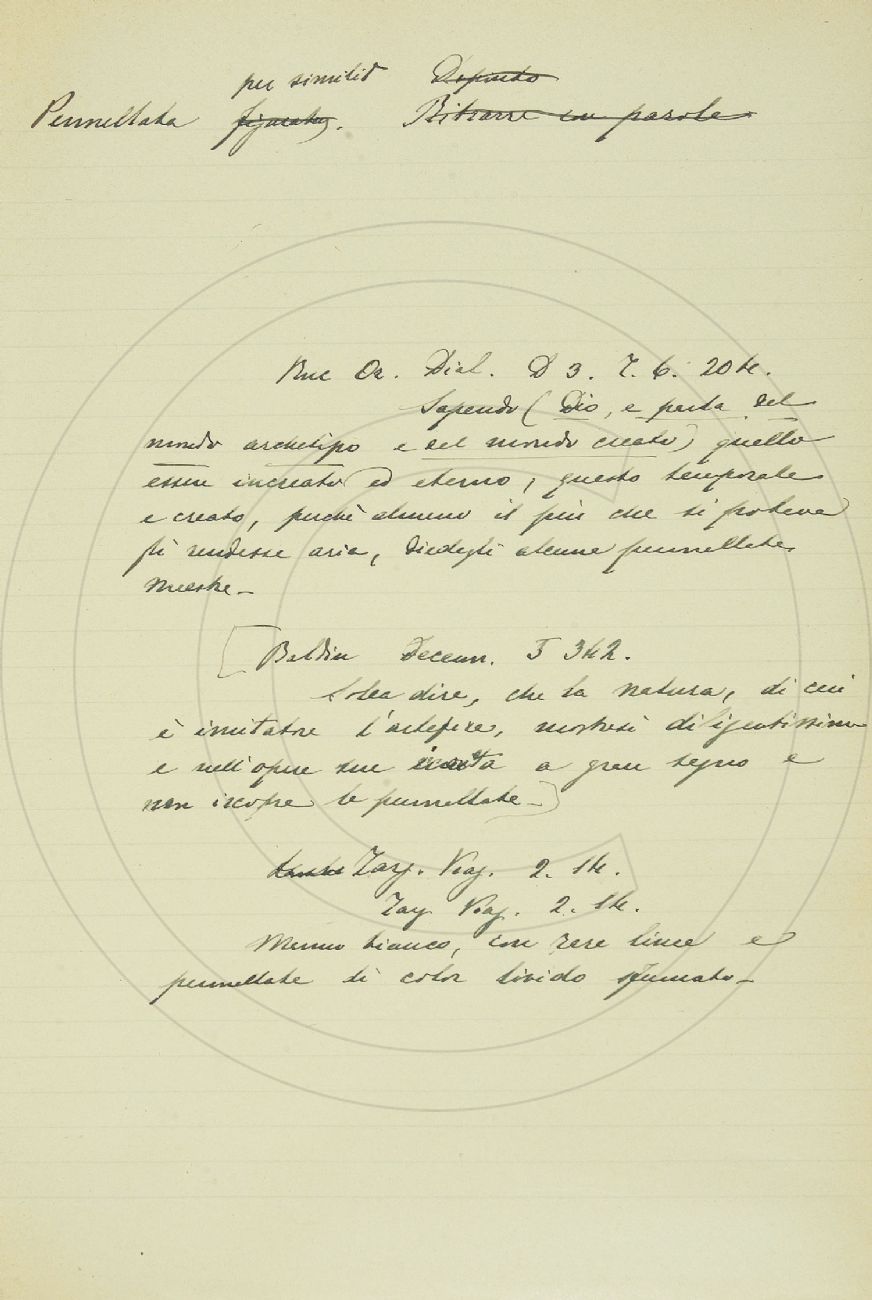 per similit ~~Dipinto~~
Pennellata ~~figurata~~. ~~Ritrarre in parole~~
Ruc Or. Dial. D 3. 7. 6. 204.
Sapendo (Dio, e parla del
mondo archetipo e del mondo creato) quello
essere increato ed eterno, questo temporale
e creato, perchè almeno il più che si poteva
gli rendesse aria, diedegli alcune pennellate
maestre_
[Baldin Decenn. 342.
Solea dire, che la natura, di cui
è imitatore l'artefice, mostrasi diligentissima
e nell'opere sue a gran segno e
non iscopre le pennellate_]
Targ. Viag. 2. 14.
Targ Viag. 2. 14.
Marmo bianco, con rare linee e
pennellate di color livido sfumato_